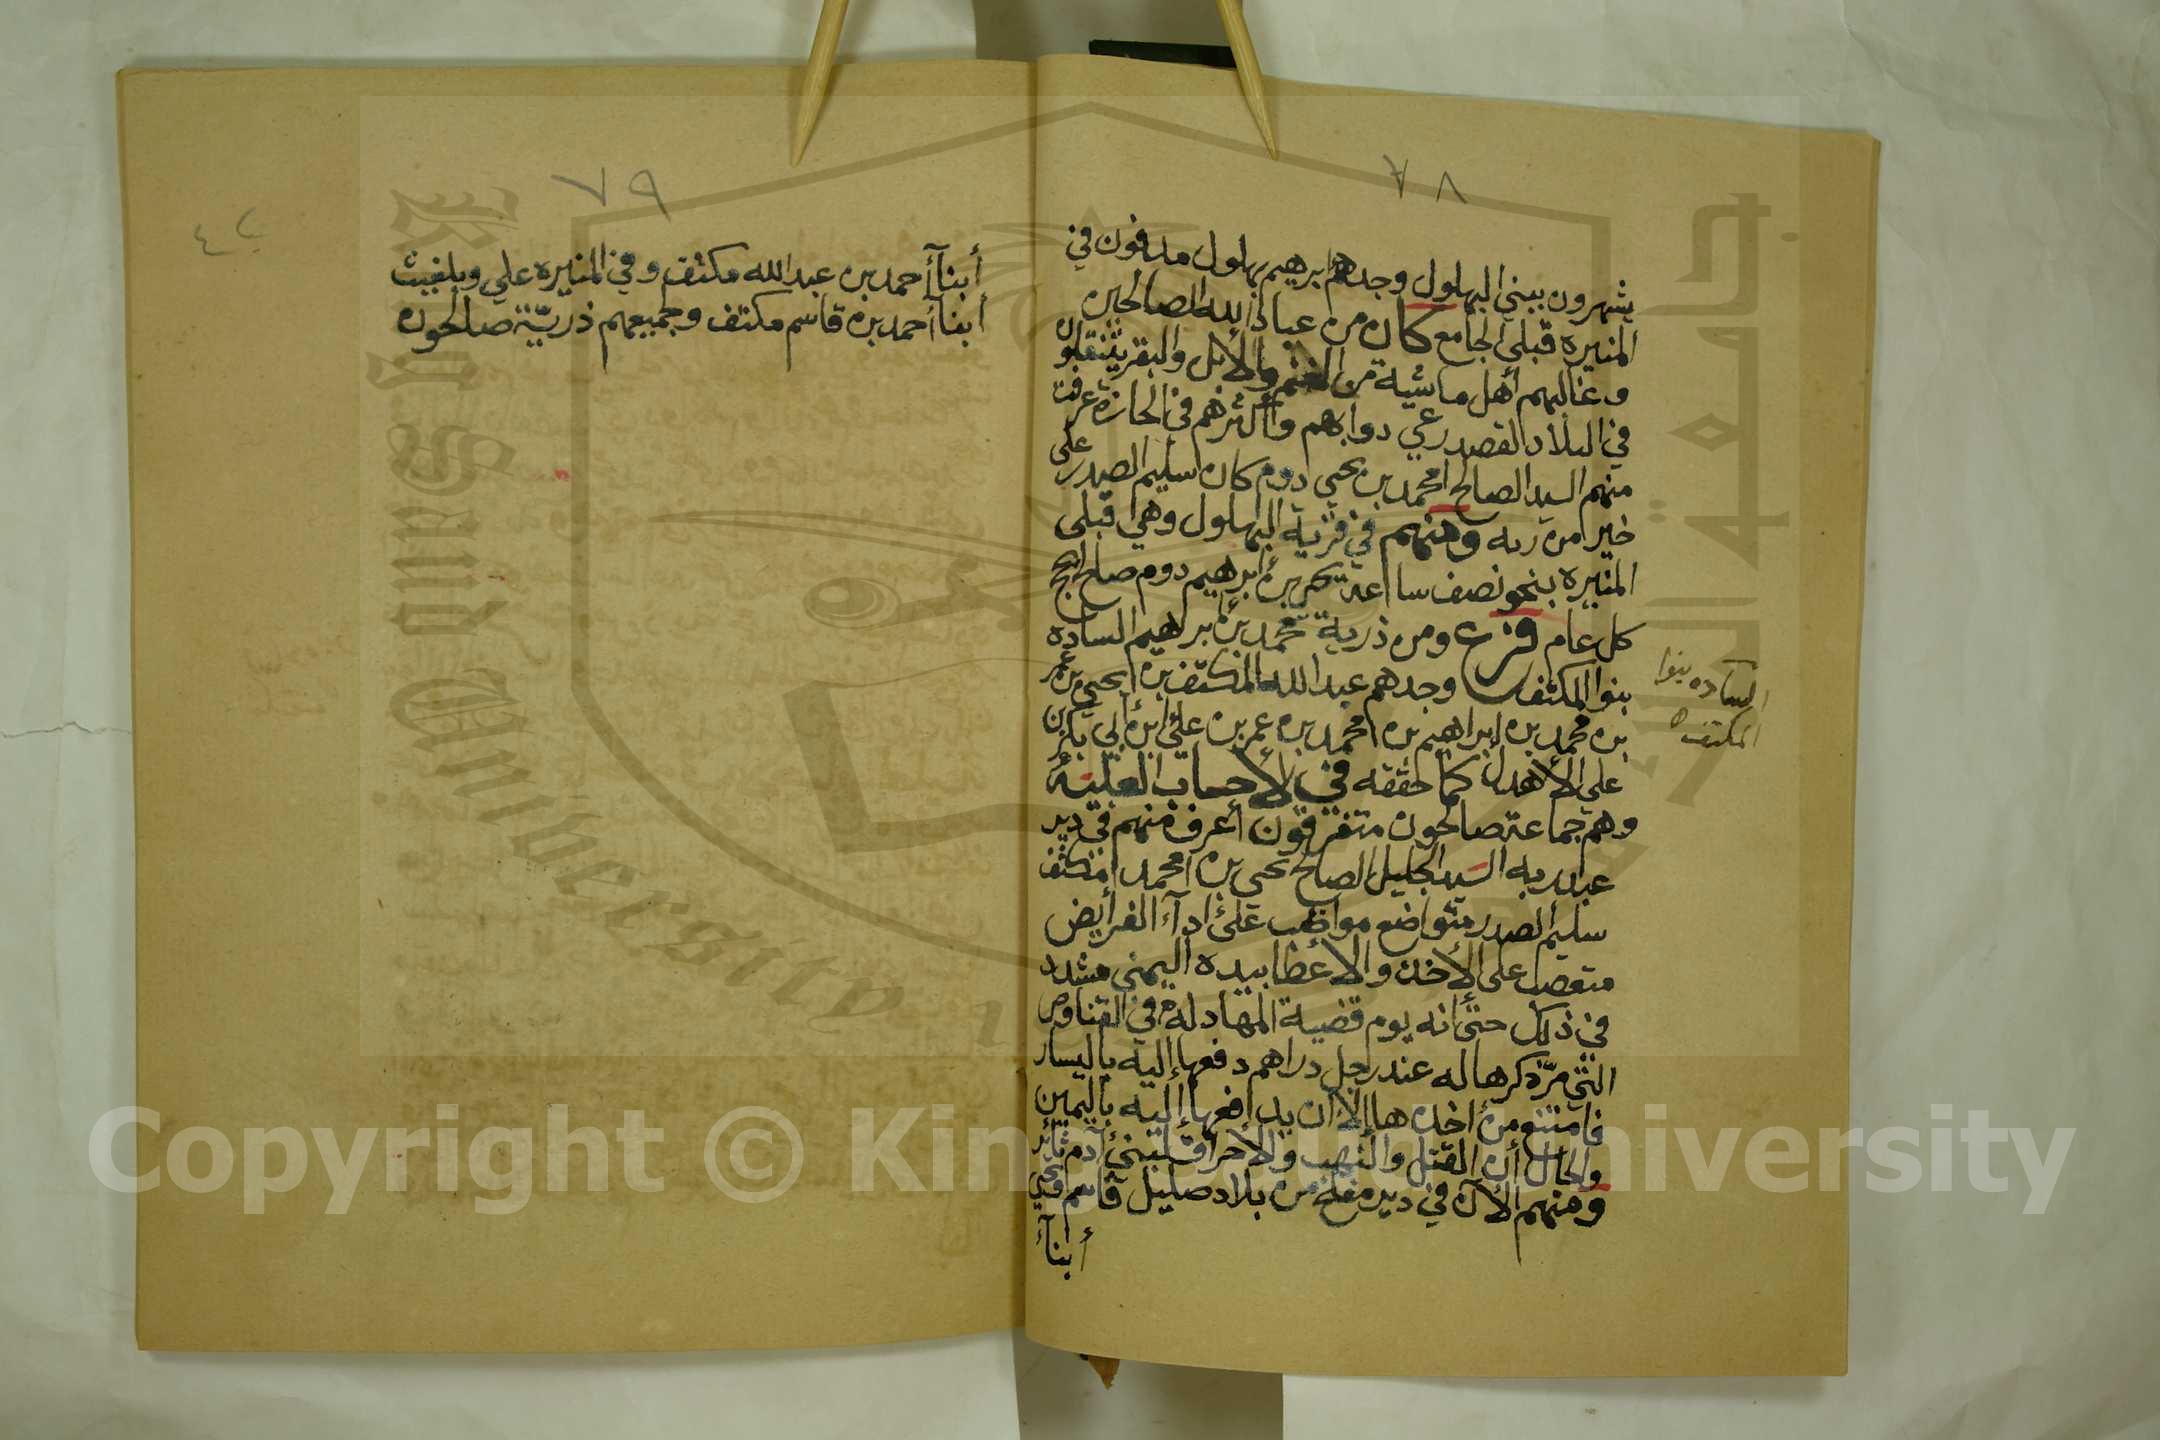 ٧٨
يشهرون ببني البهلول وجدهم ابرهيم بهلول مدفون في
المنيره قبلي الجامع كان من عباد الله الصالحين
وغالبهم أهل ماشية من الغنم والابل والبقر يتنقلون
في البلاد لقصد رعي دوابهم وأكثرهم في الحازة عرفت
منهم السيد الصالح محمد بن يحيى دوم كان سليم الصدر على
خير من ربه ومنهم في قرية البهلول وهي قبلي
المنيره بنحو نصف ساعة بن ابرهيم دوم صالح الحج
كل عام فرع ومن ذرية محمد بن ابراهيم الساده
بنوا المكتف وجدهم عبد الله المكتف بن يحيى بن عمر
بن محمد بن إبراهيم بن محمد بن عمر بن علي بن أبي بكر بن
علي الأهدل كما حققه في الأحساب العليه
وهم جماعة صالحون متفرقون أعرف منهم في دير
عبد ربه السيد الجليل الصالح يحيى بن محمد مكتف
سليم الصدر متواضع مواظب على ادآء الفرايض
على الأخذ والاعطا بيده اليمنى مشدد
في ذلك حتى انه يوم قضية المهادلة في القناوص
التي مر ذكرها له عند رجل دراهم دفعها إليه باليسار
فامتنع من اخذها إلا ان يدافعها إليه باليمين
والحال أن القتل والنهب والاحراق لبني آدم ثائر
ومنهم الآن في دير مفلح من بلاد صليل قاسم ويحيى
أبنآء
الساده بنوا
المكتف
٧٩
أبنآ أحمد بن عبد الله مكتف وفي المنيره علي وبلغيث
أبنا أحمد بن قاسم مكتف وجميعهم ذريّة صالحون
Copyright © King Saud University
King Saud University
جامعة الملك سعود